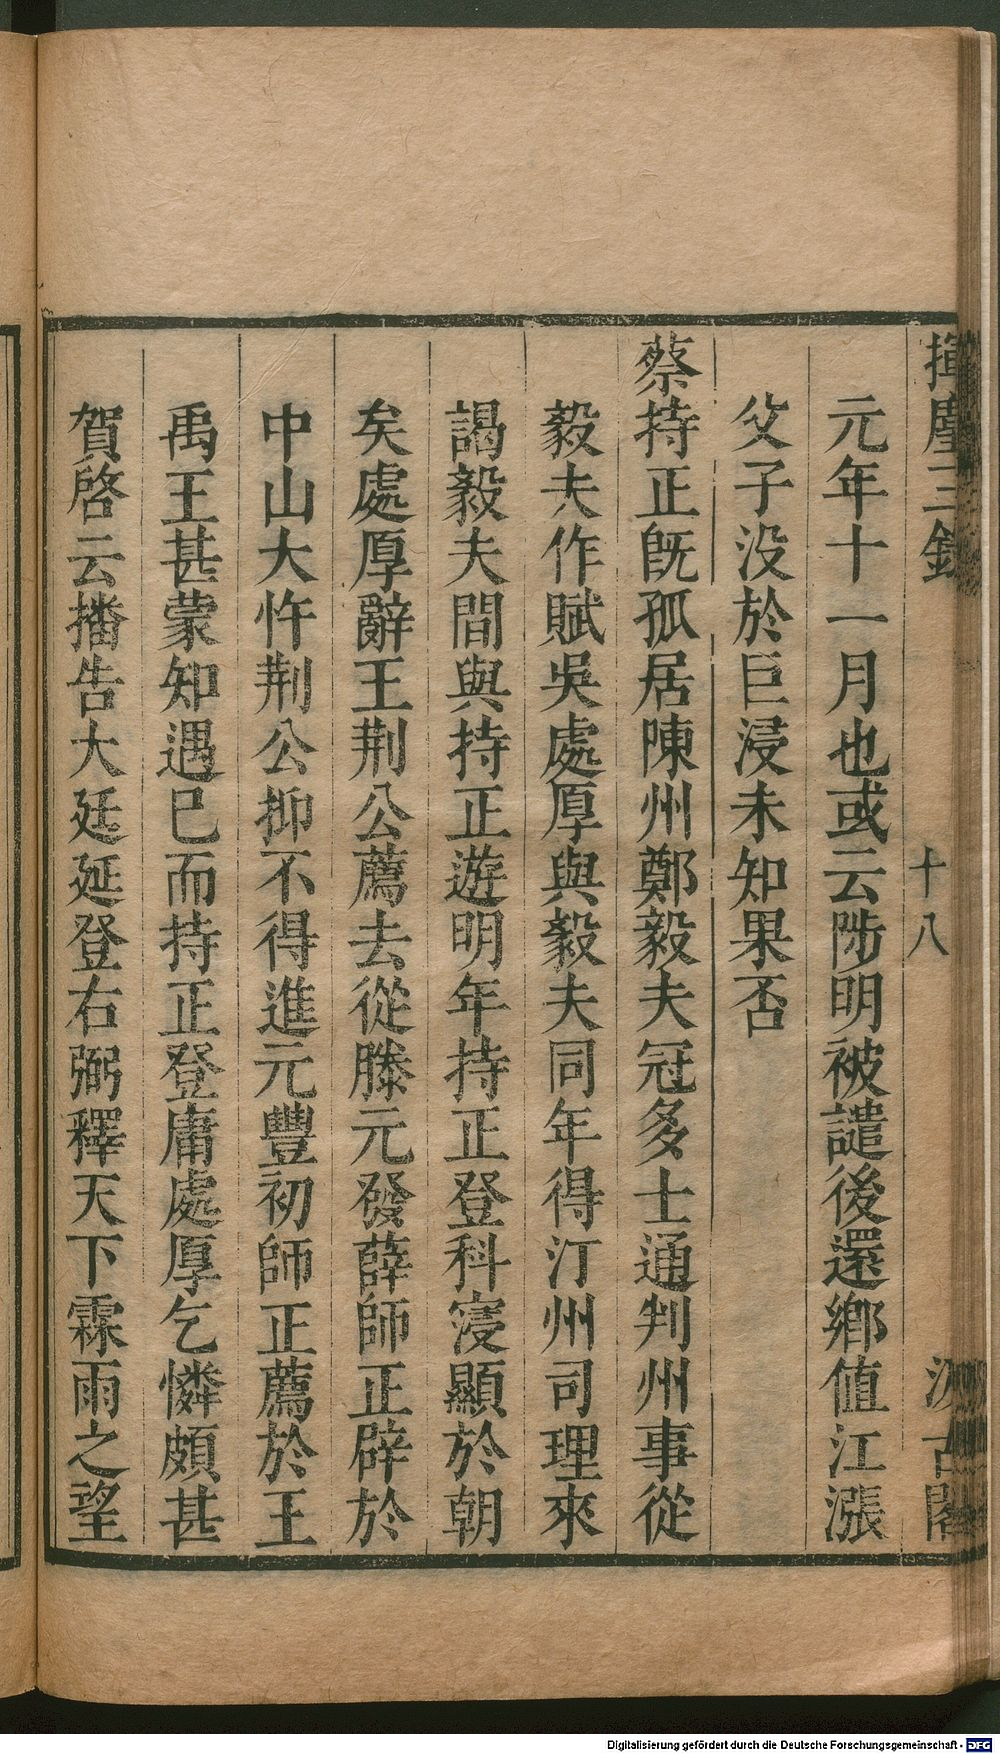 揮麈三錄
十八
汲古閣
元年十一月也或云陟明被譴後還鄉值江漲
父子没於巨浸未知果否
蔡持正旣孤居陳州鄭毅夫冠多士通判州事從
毅夫作賦吳處厚與毅夫同年得汀州司理來
謁毅夫間與持正遊明年持正登科寖顯於朝
矣處厚辭王荆公薦去從滕元發薛師正辟於
中山大忤荆公抑不得進元豐初師正薦於王
禹玉甚蒙知遇已而持正登庸處厚乞憐頗甚
賀啓云播告大廷延登右弼釋天下霖雨之望
Digitalisierung gefördert durch die Deutsche Forschungsgemeinschaft - DFG